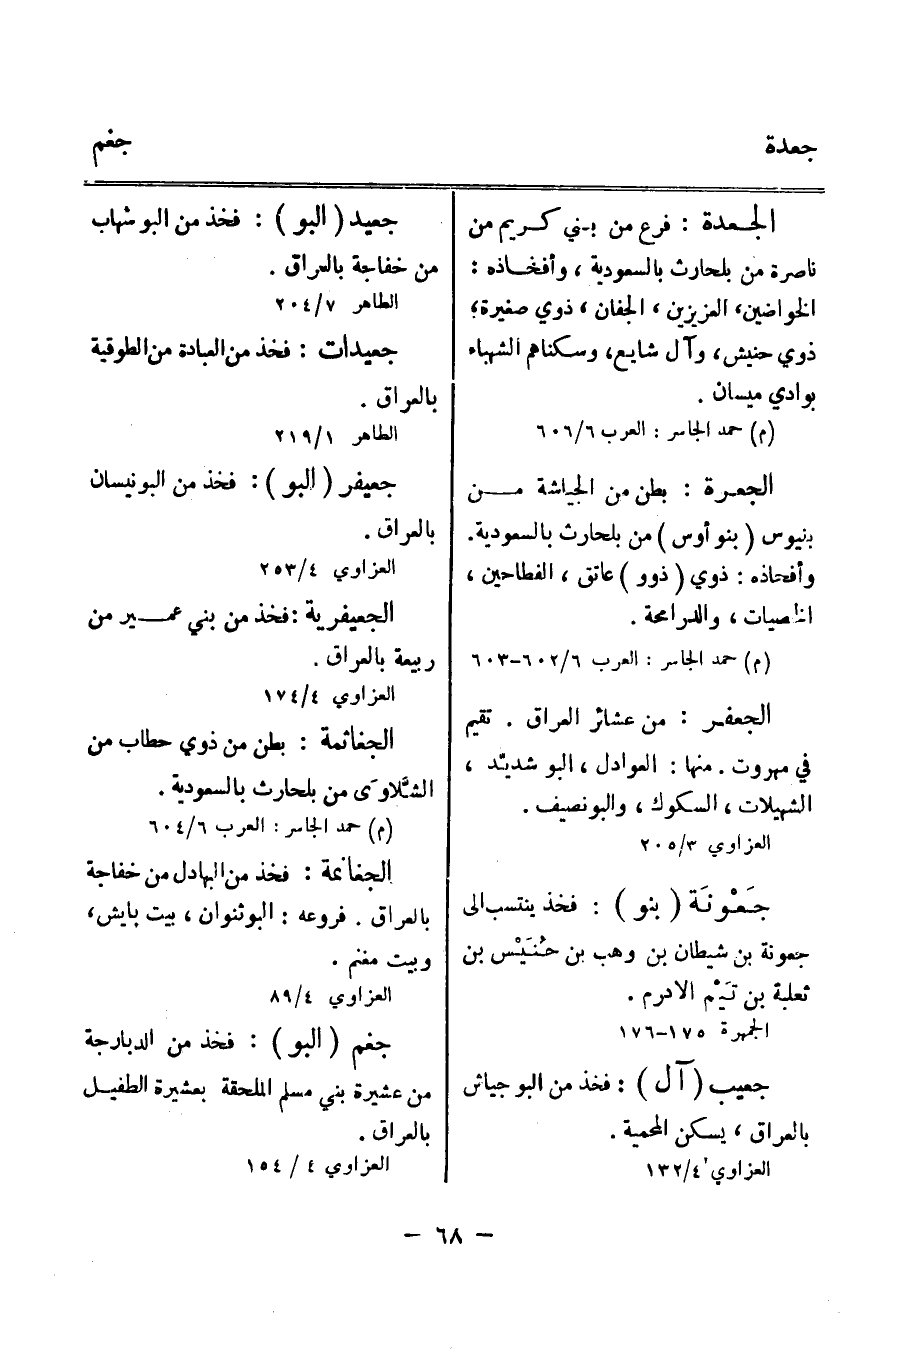 جعدة
جغم
الجـعدة : فرع من بـني كـريم من
ناصرة من بلحارث بالسعودية ، وأفخـاذه :
الخواضين، العزيزين ، الجفان ، ذوي صغيرة،
ذوي حنيش، وآل شايع، وسكناهم الشهباء
بوادي ميسان .
(م) حمد الجاسر : العرب ٦٠٦/٦
الجعـرة : بطن من الجياشة مـــن
بنيوس ( بنو أوس ) من بلحارث بالسعودية.
وأفخاذه : ذوي ( ذوو ) عاتق ، الفطاحين ،
الخاصيات ، والدرامحة .
(م) حمد الجاسر : العرب ٦٠٢/٦-٦٠٣
الجعفـر : من عشائر العراق . تقيم
في مهروت . منها : العوادل ، البو شديّد ،
الشهيلات ، السكوك ، والبونصيف .
العزاوي ٢٠٥/٣
جَـعْوُنَة ( بنو ) : فخذ ينتسب الى
جعونة بن شيطان بن وهب بن حُنَيْس بن
ثعلبة بن تَيْم الادرم .
الجمهرة ١٧٥-١٧٦
جعيب ( آل ) : فخذ من البو جياش
بالعراق ، يسكن المحمية .
العزاوي ١٣٢/٤
جعيد ( البو ) : فخذ من البو شهاب
من خفاجة بالعراق .
الطاهر ٢٠٤/٧
جعيدات : فخذ من العبادة من الطوقية
بالعراق .
الطاهر ٢١٩/١
جعيفر ( البو ) : فخذ من البونيسان
بالعراق .
العزاوي ٢٥٣/٤
الجعيفرية : فخذ من بني عمـــير من
ربيعة بالعراق .
العزاوي ١٧٤/٤
الجغائمة : بطن من ذوي حطاب من
الشَّلاوَى من بلحارث بالسعودية .
(م) حمد الجاسر : العرب ٦٠٤/٦
الجغانمة : فخذ من البهادل من خفاجة
بالعراق . فروعه : البوثنوان ، بيت بايش،
وبيت مغنم .
العزاوي ٨٩/٤
جغم ( البو ) : فخذ من الدبارجة
من عشيرة بني مسلم الملحقة بعشيرة الطفيـل
بالعراق .
العزاوي ٤ / ١٥٤
– ٦٨ –